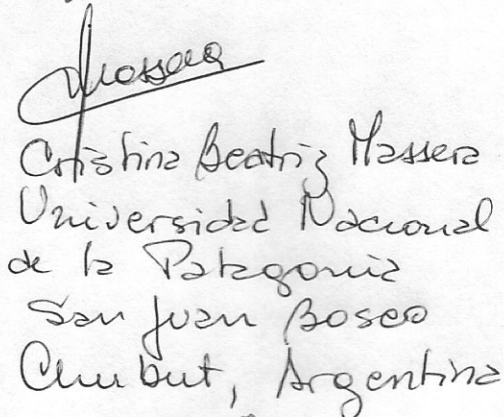 Massera
Cristina Beatriz Massera
Universidad Nacional
de la Patagonia
San Juan Bosco
Chubut, Argentina